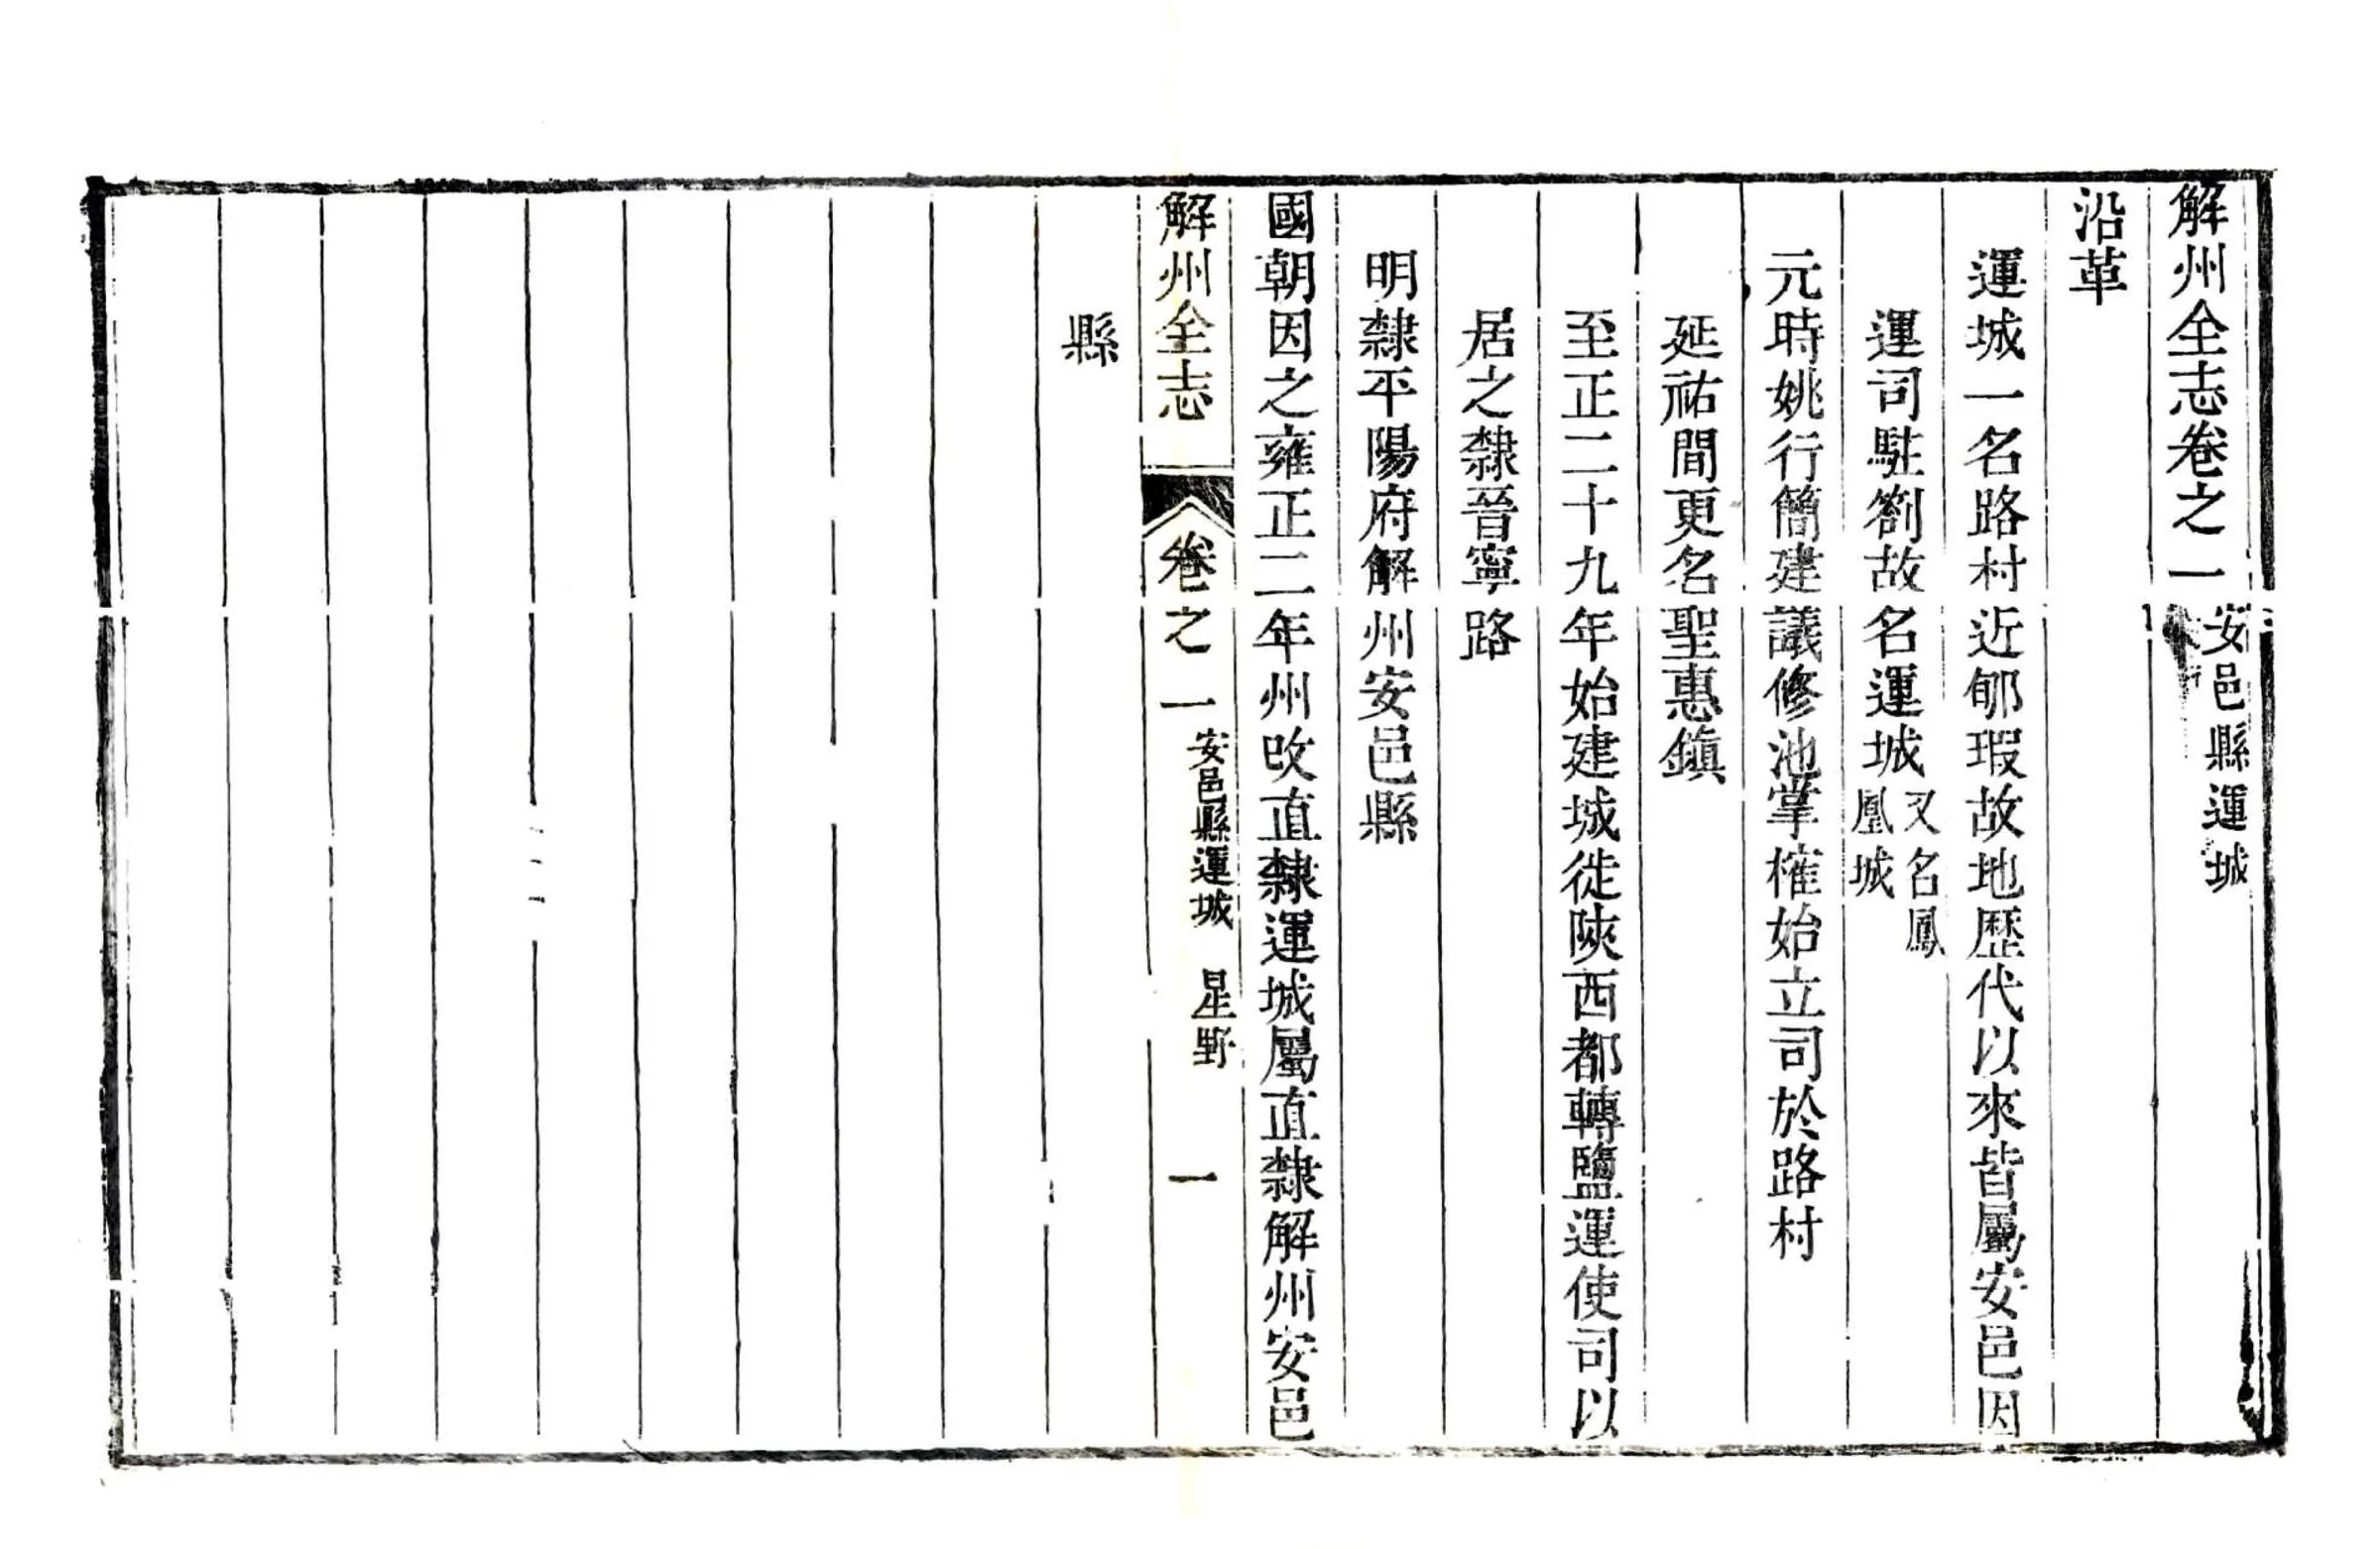 解州全志卷之一 安邑縣運城
沿革
運城一名路村近郇瑕故地歷代以來皆屬安邑因
運司駐劄故名運城又名鳳
凰城
元時姚行簡建議修池掌榷始立司於路村
延祐間更名聖惠鎮
至正二十九年始建城徙陝西都轉鹽運使司以
居之隸晉寧路
明隸平陽府解州安邑縣
國朝因之雍正二年州改直隸運城屬直隸解州安邑
解州全志 卷之一 安邑縣運城 星野 一
縣